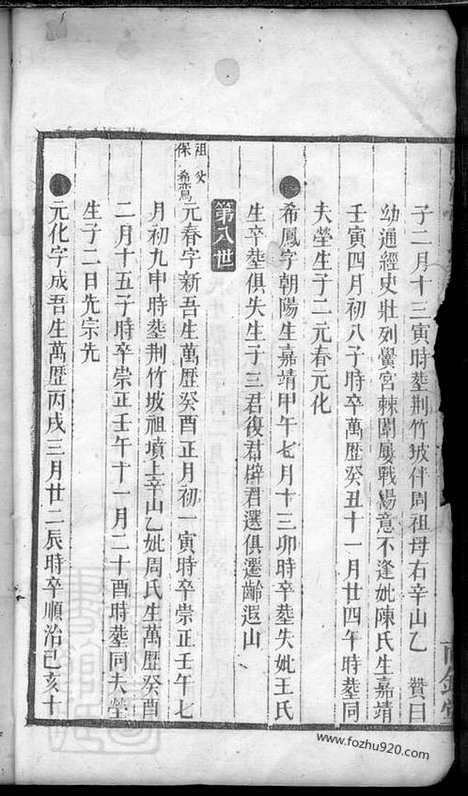 子二月十三寅時葬荆竹坡伴周祖母右辛山乙　贊曰
幼通經史壯列黌宮棘闈屢戰場意不逢妣陳氏生嘉靖
壬寅四月初八子時卒萬歷癸丑十一月廿四午時葬同
夫塋生子二元春元化
希鳳字朝陽生嘉靖甲午七月十三卯時卒葬失妣王氏
生卒葬俱失生子三君復君辟君選俱遷齡遐山
第八世
祖父
希鸞
保
元春字新吾生萬歷癸酉正月初一寅時卒崇正壬午七
月初九申時葬荆竹坡祖墳上辛山乙妣周氏生萬歷癸酉
二月十五子時卒崇正壬午十一月二十酉時葬同夫塋
生子二日先宗先
元化字成吾生萬歷丙戌三月廿二辰時卒順治己亥十
www.fozhu920.com